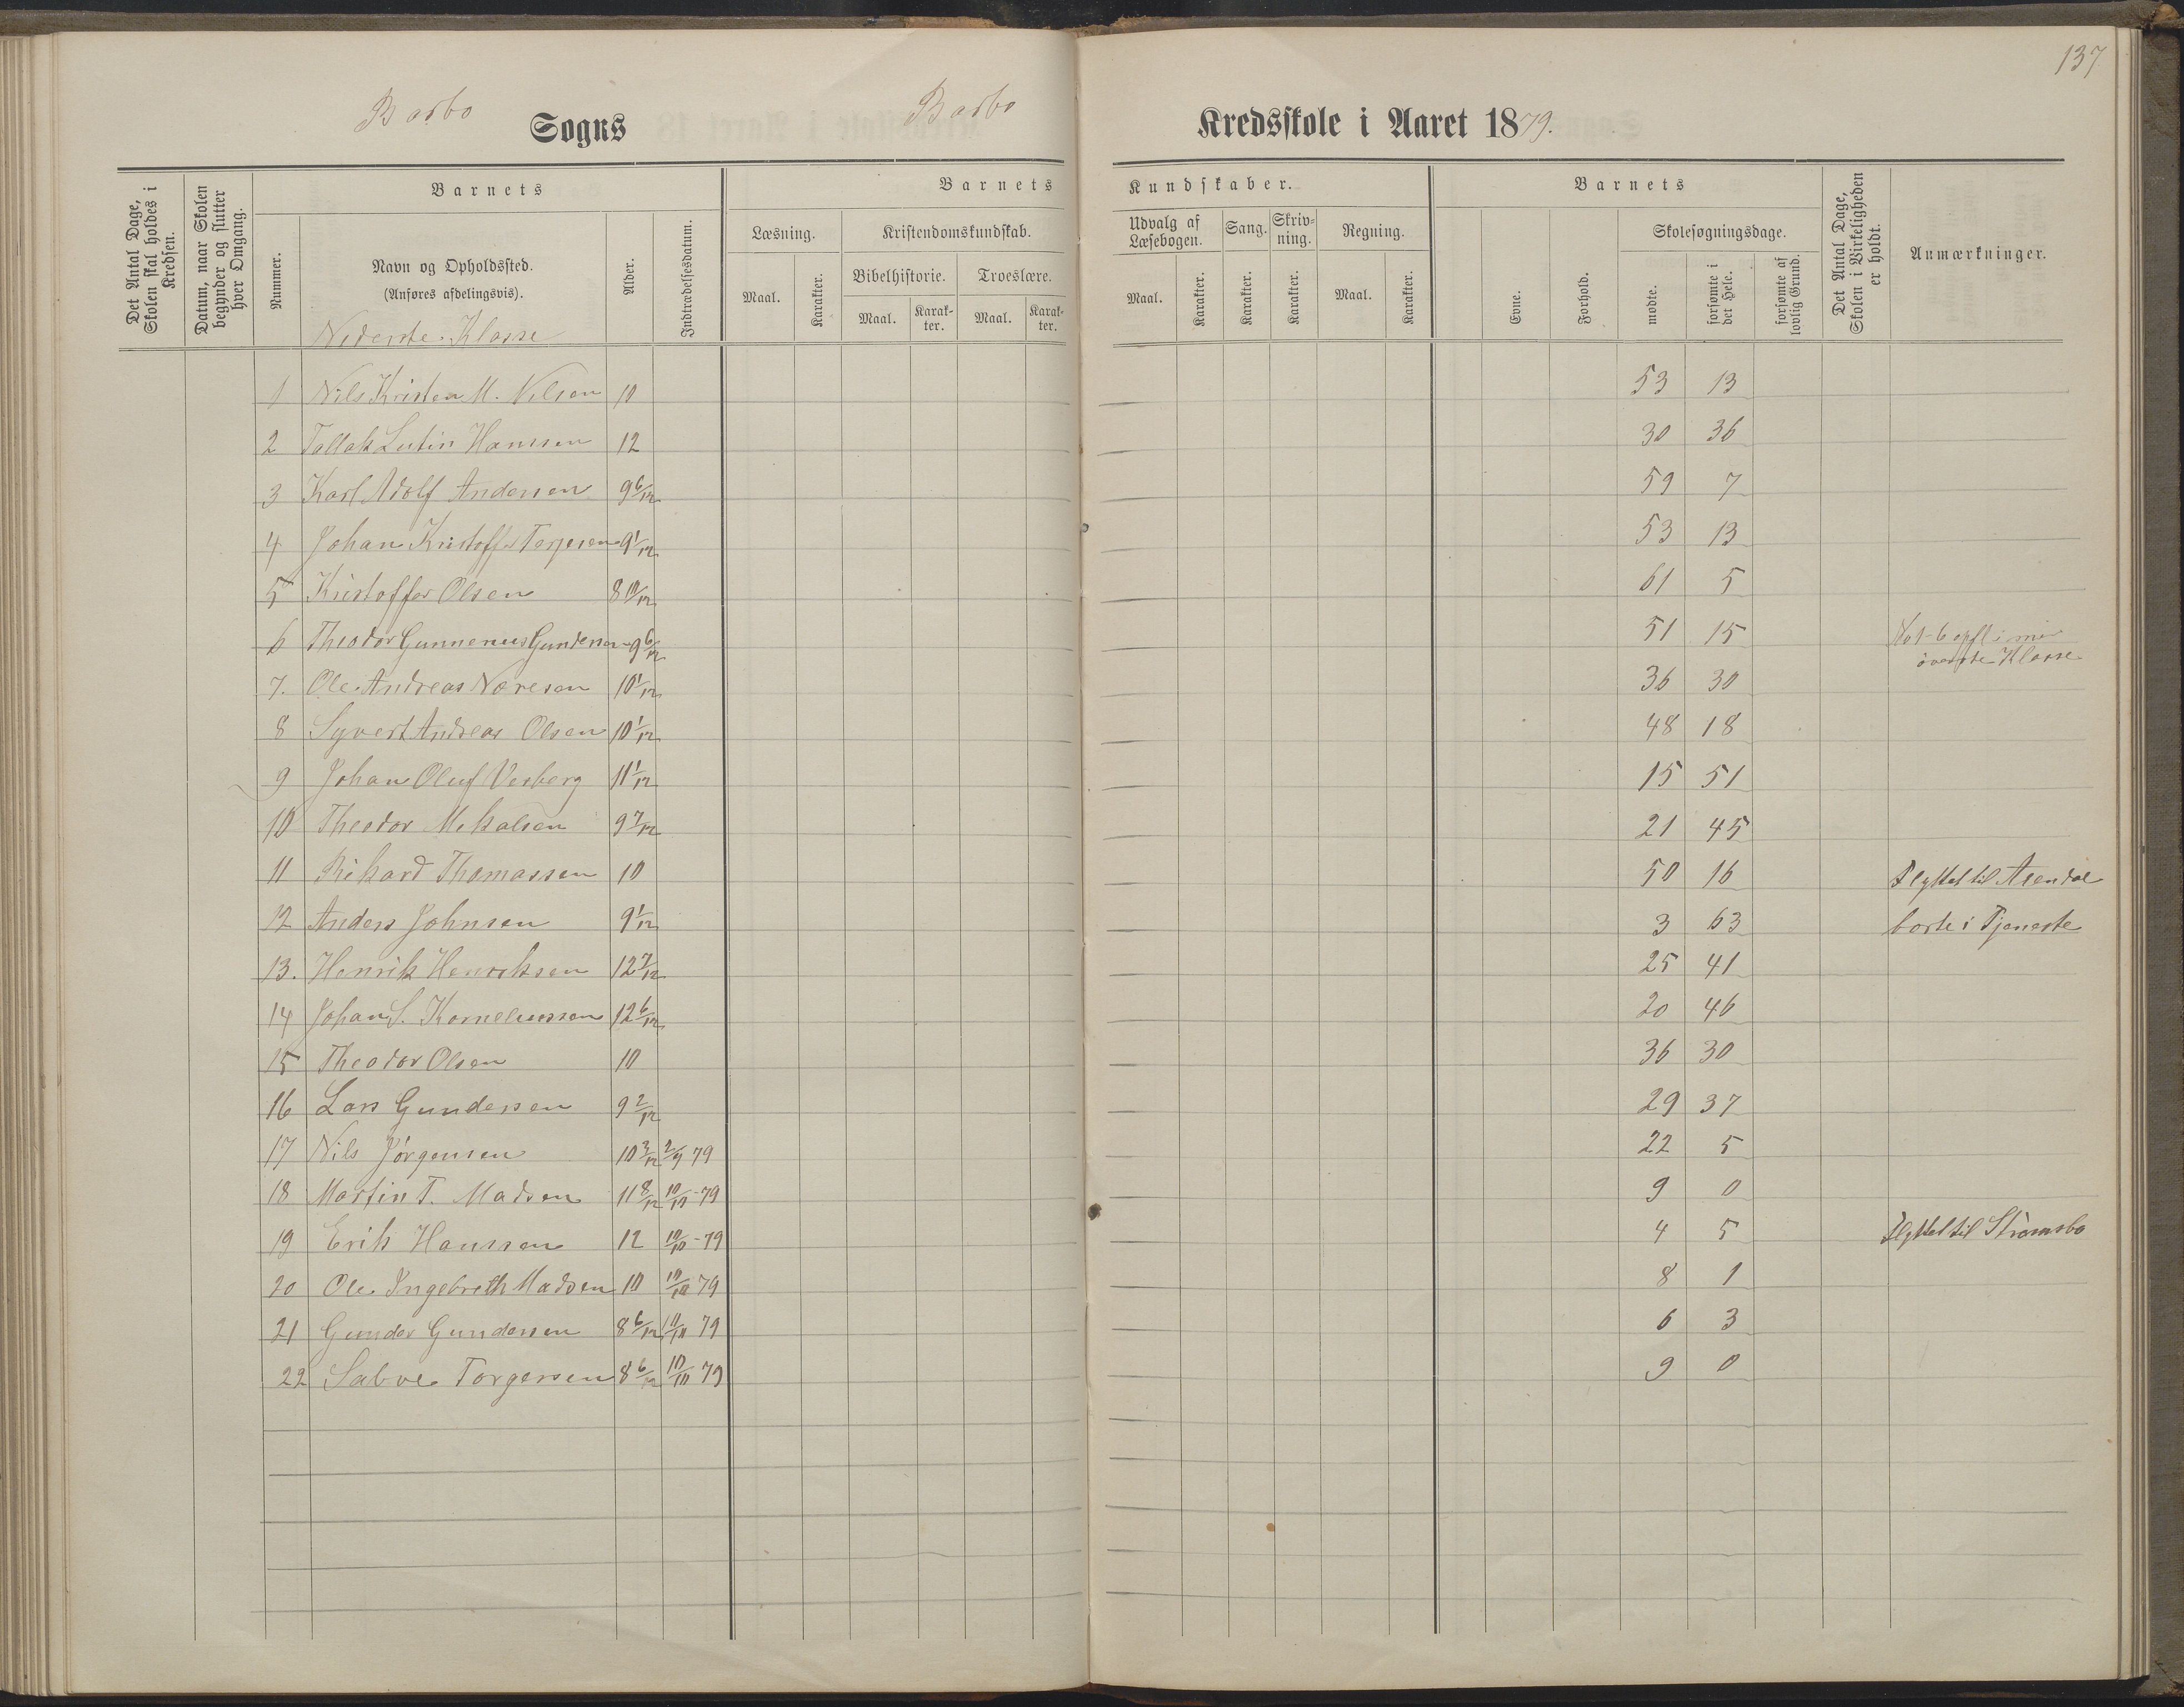 137
Barbo Sogns Barbo Kredsskole i Aaret 1879.
Det Antal Dage, Skolen skal holdes i Kredsen.
Datum, naar Skolen begynder og slutter hver Omgang.
Barnets
Nummer.
Navn og Opholdssted.
(Anføres afdelingsvis).
Nederste Klasse
Alder.
Indtrædelsesdatum.
Barnets Kundskaber.
Læsning.
Maal. Karakter.
Kristendomskundskab.
Bibelhistorie. Troeslære.
Maal. Karakter. Maal. Karakter.
Udvalg af Læsebogen.
Maal. Karakter.
Sang.
Karakter.
Skrivning.
Karakter.
Regning.
Maal. Karakter.
Barnets
Evne.
Forhold.
Skolesøgningsdage.
mødte.
forsømte i det Hele.
forsømte af lovlig Grund.
Det Antal Dage, Skolen i Virkeligheden er holdt.
Anmærkninger.
1 Nils Kristen M. Nilsen 10 53 13
2 Tallak Hanssen 12 30 36
3 Karl Adolf Anderssen 9 6/12 59 7
4 Johan Kristoffer Torjesen 9 1/12 53 13
5 Kristoffer Olsen 8 10/12 61 5
6 Theodor Gunnerius Gundersen 9 6/12 51 15 No 1-6 opfl i
øverste Klasse
7. Ole Andreas 10 1/12 36 30
8 Syvert Andreas Olsen 10 1/12 48 18
9 Johan Oluf Vesberg 11 1/12 15 51
10 Theodor Mikalsen 9 7/12 21 45
11 Rikard Thomassen 10 50 16 Flyttet til Arendal
12 Anders Johnsen 9 1/12 3 63 borte i Tjeneste
13. Henrik Henriksen 12 7/12 25 41
14 Johan S. Korneliussen 12 6/12 20 46
15 Theodor Olsen 10 36 30
16 Lars Gundersen 9 2/12 29 37
17 Nils Jörgensen 10 3/12 2/9 79 22 5
18 Martin T. Madsen 11 8/12 10/10 - 79 9 0
19 Erik Hanssen 12 10/10 - 79 4 5 Flyttet til Strømsbo
20 Ole Ingebreth Madsen 10 10/10 79 8 1
21 Gunder Gundersen 8 6/12 10/10 79 6 3
22 Salve Torgersen 8 6/12 10/10 79 9 0